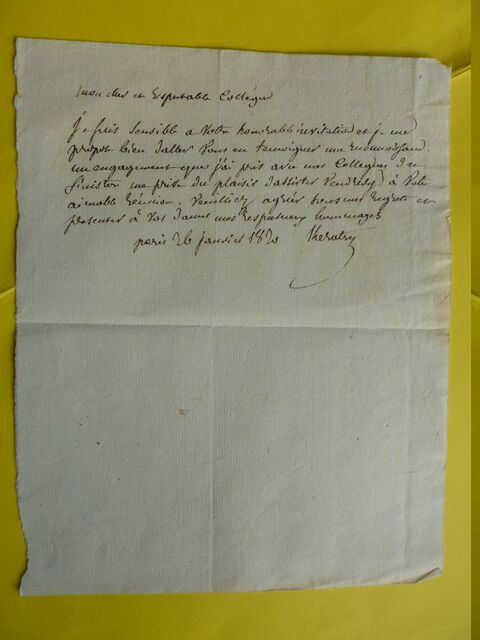 mon cher et respectable Collégue
Je suis sensible a votre honorable invitation et je me
propose bien d'aller vous en temoigner ma reconnoissance.
un engagement que j'ai pris avec mes Collegues du
finistere me prive du plaisir d'assister vendredy à votre
aimable reunion. veuillez agréer tous mes regrets et
presenter à vos dames mes respectueux hommages
paris 26 janvier 1820 Kératry